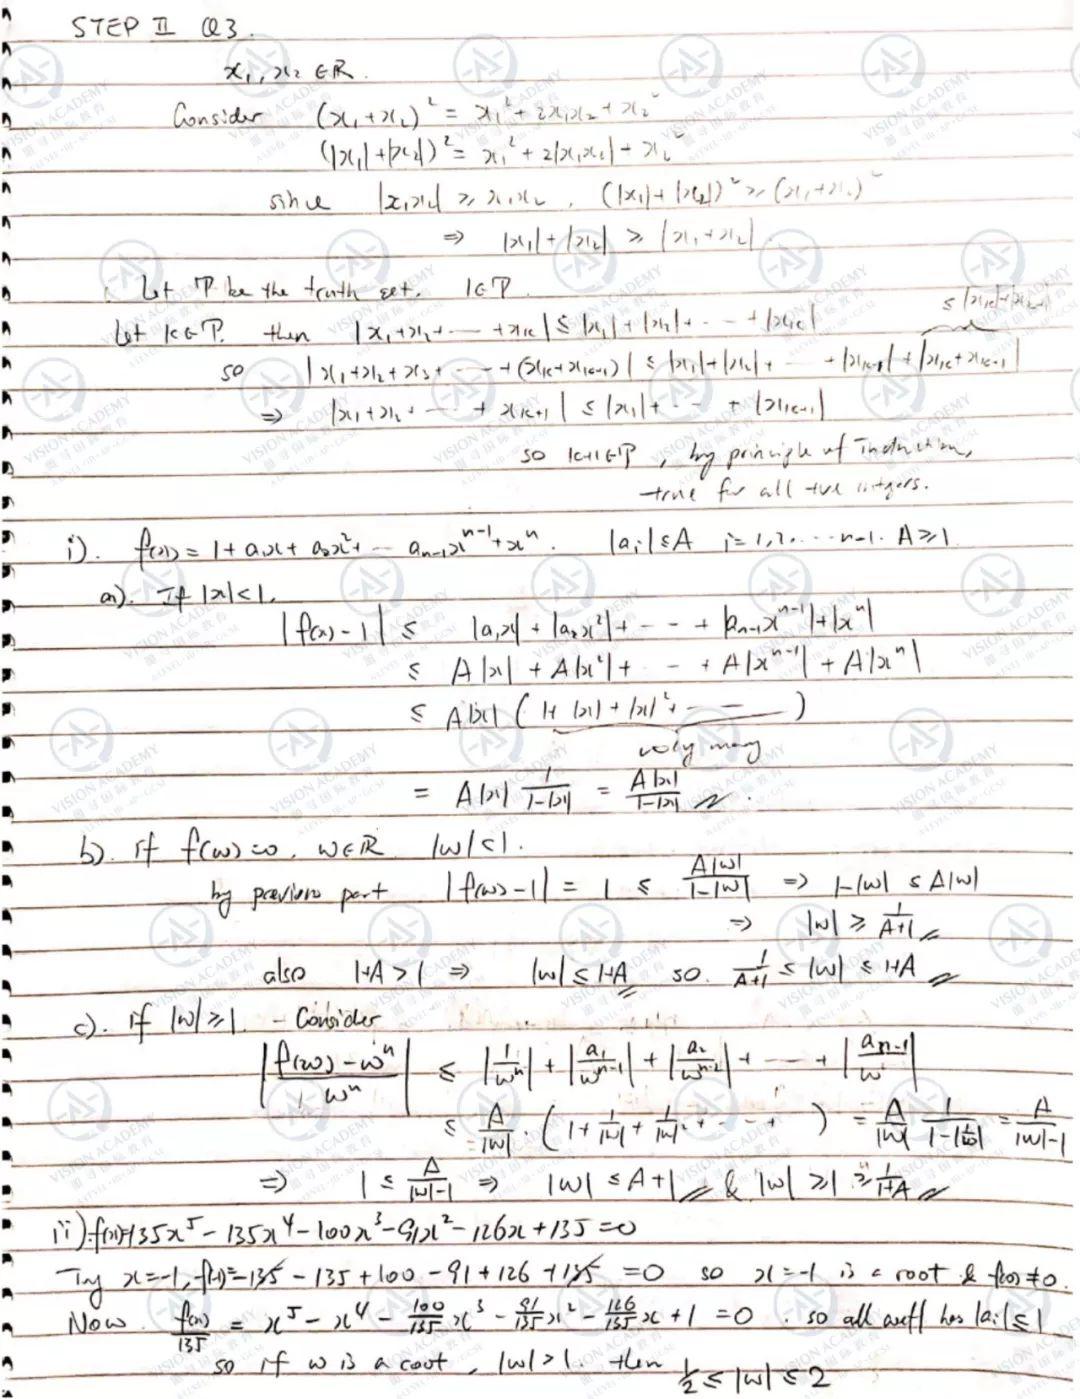 STEP II Q3.
x₁, x₂ ∈ ℝ.
Consider (x₁+x₂)² = x₁² + 2x₁x₂ + x₂²
(|x₁|+|x₂|)² = x₁² + 2|x₁x₂| + x₂²
since |x₁x₂| ≥ x₁x₂, (|x₁|+|x₂|)² ≥ (x₁+x₂)²
⇒ |x₁|+|x₂| ≥ |x₁+x₂|
Let P be the truth set. 1∈P.
≤ |xₖ|+|xₖ₊₁|
Let k∈P. then |x₁+x₂+---+xₖ| ≤ |x₁|+|x₂|+---+|xₖ|
so |x₁+x₂+x₃+---+(xₖ+xₖ₊₁)| ≤ |x₁|+|x₂|+---+|xₖ₋₁|+|xₖ+xₖ₊₁|
⇒ |x₁+x₂+---+xₖ₊₁| ≤ |x₁|+---+|xₖ₊₁|
so k+1∈P, by principle of Induction,
true for all +ve integers.
i). f(x) = 1+a₁x+a₂x²+---aₙ₋₁xⁿ⁻¹+xⁿ. |aᵢ|≤A i=1,2,----n-1. A≥1
a). If |x|<1.
|f(x)-1| ≤ |a₁x|+|a₂x²|+---+|aₙ₋₁xⁿ⁻¹|+|xⁿ|
≤ A|x|+A|x²|+---+A|xⁿ⁻¹|+A|xⁿ|
≤ A|x|(1+|x|+|x|²+---)
∞ly many
= A|x| 1/(1-|x|) = A|x|/(1-|x|).
b). if f(w)=0, w∈ℝ. |w|<1.
by previous part |f(w)-1| = 1 ≤ A|w|/(1-|w|) ⇒ 1-|w| ≤ A|w|
⇒ |w| ≥ 1/(A+1)
also 1+A>1 ⇒ |w| ≤ 1+A so. 1/(A+1) ≤ |w| ≤ 1+A
c). if |w|≥1. - Consider
|(f(w)-wⁿ)/wⁿ| ≤ |1/wⁿ|+|a₁/wⁿ⁻¹|+|a₂/wⁿ⁻²|+---+|aₙ₋₁/w|
≤ A/|w|·(1+1/|w|+1/|w|²+---+) = A/|w| 1/(1-|1/w|) = A/(|w|-1)
⇒ 1 ≤ A/(|w|-1) ⇒ |w| ≤ A+1 & |w| ≥ 1 ≥ 1/(1+A)
ii). f(x)=135x⁵-135x⁴-100x³-91x²-126x+135=0
Try x=-1, f(-1)=-135-135+100-91+126+135=0 so x=-1 is a root & f(0)≠0.
Now f(x)/135 = x⁵-x⁴-100/135x³-91/135x²-126/135x+1=0. so all coeff has |aᵢ|≤1
so if w is a root, |w|>1. then 1/2 ≤ |w| ≤ 2
VISION ACADEMY